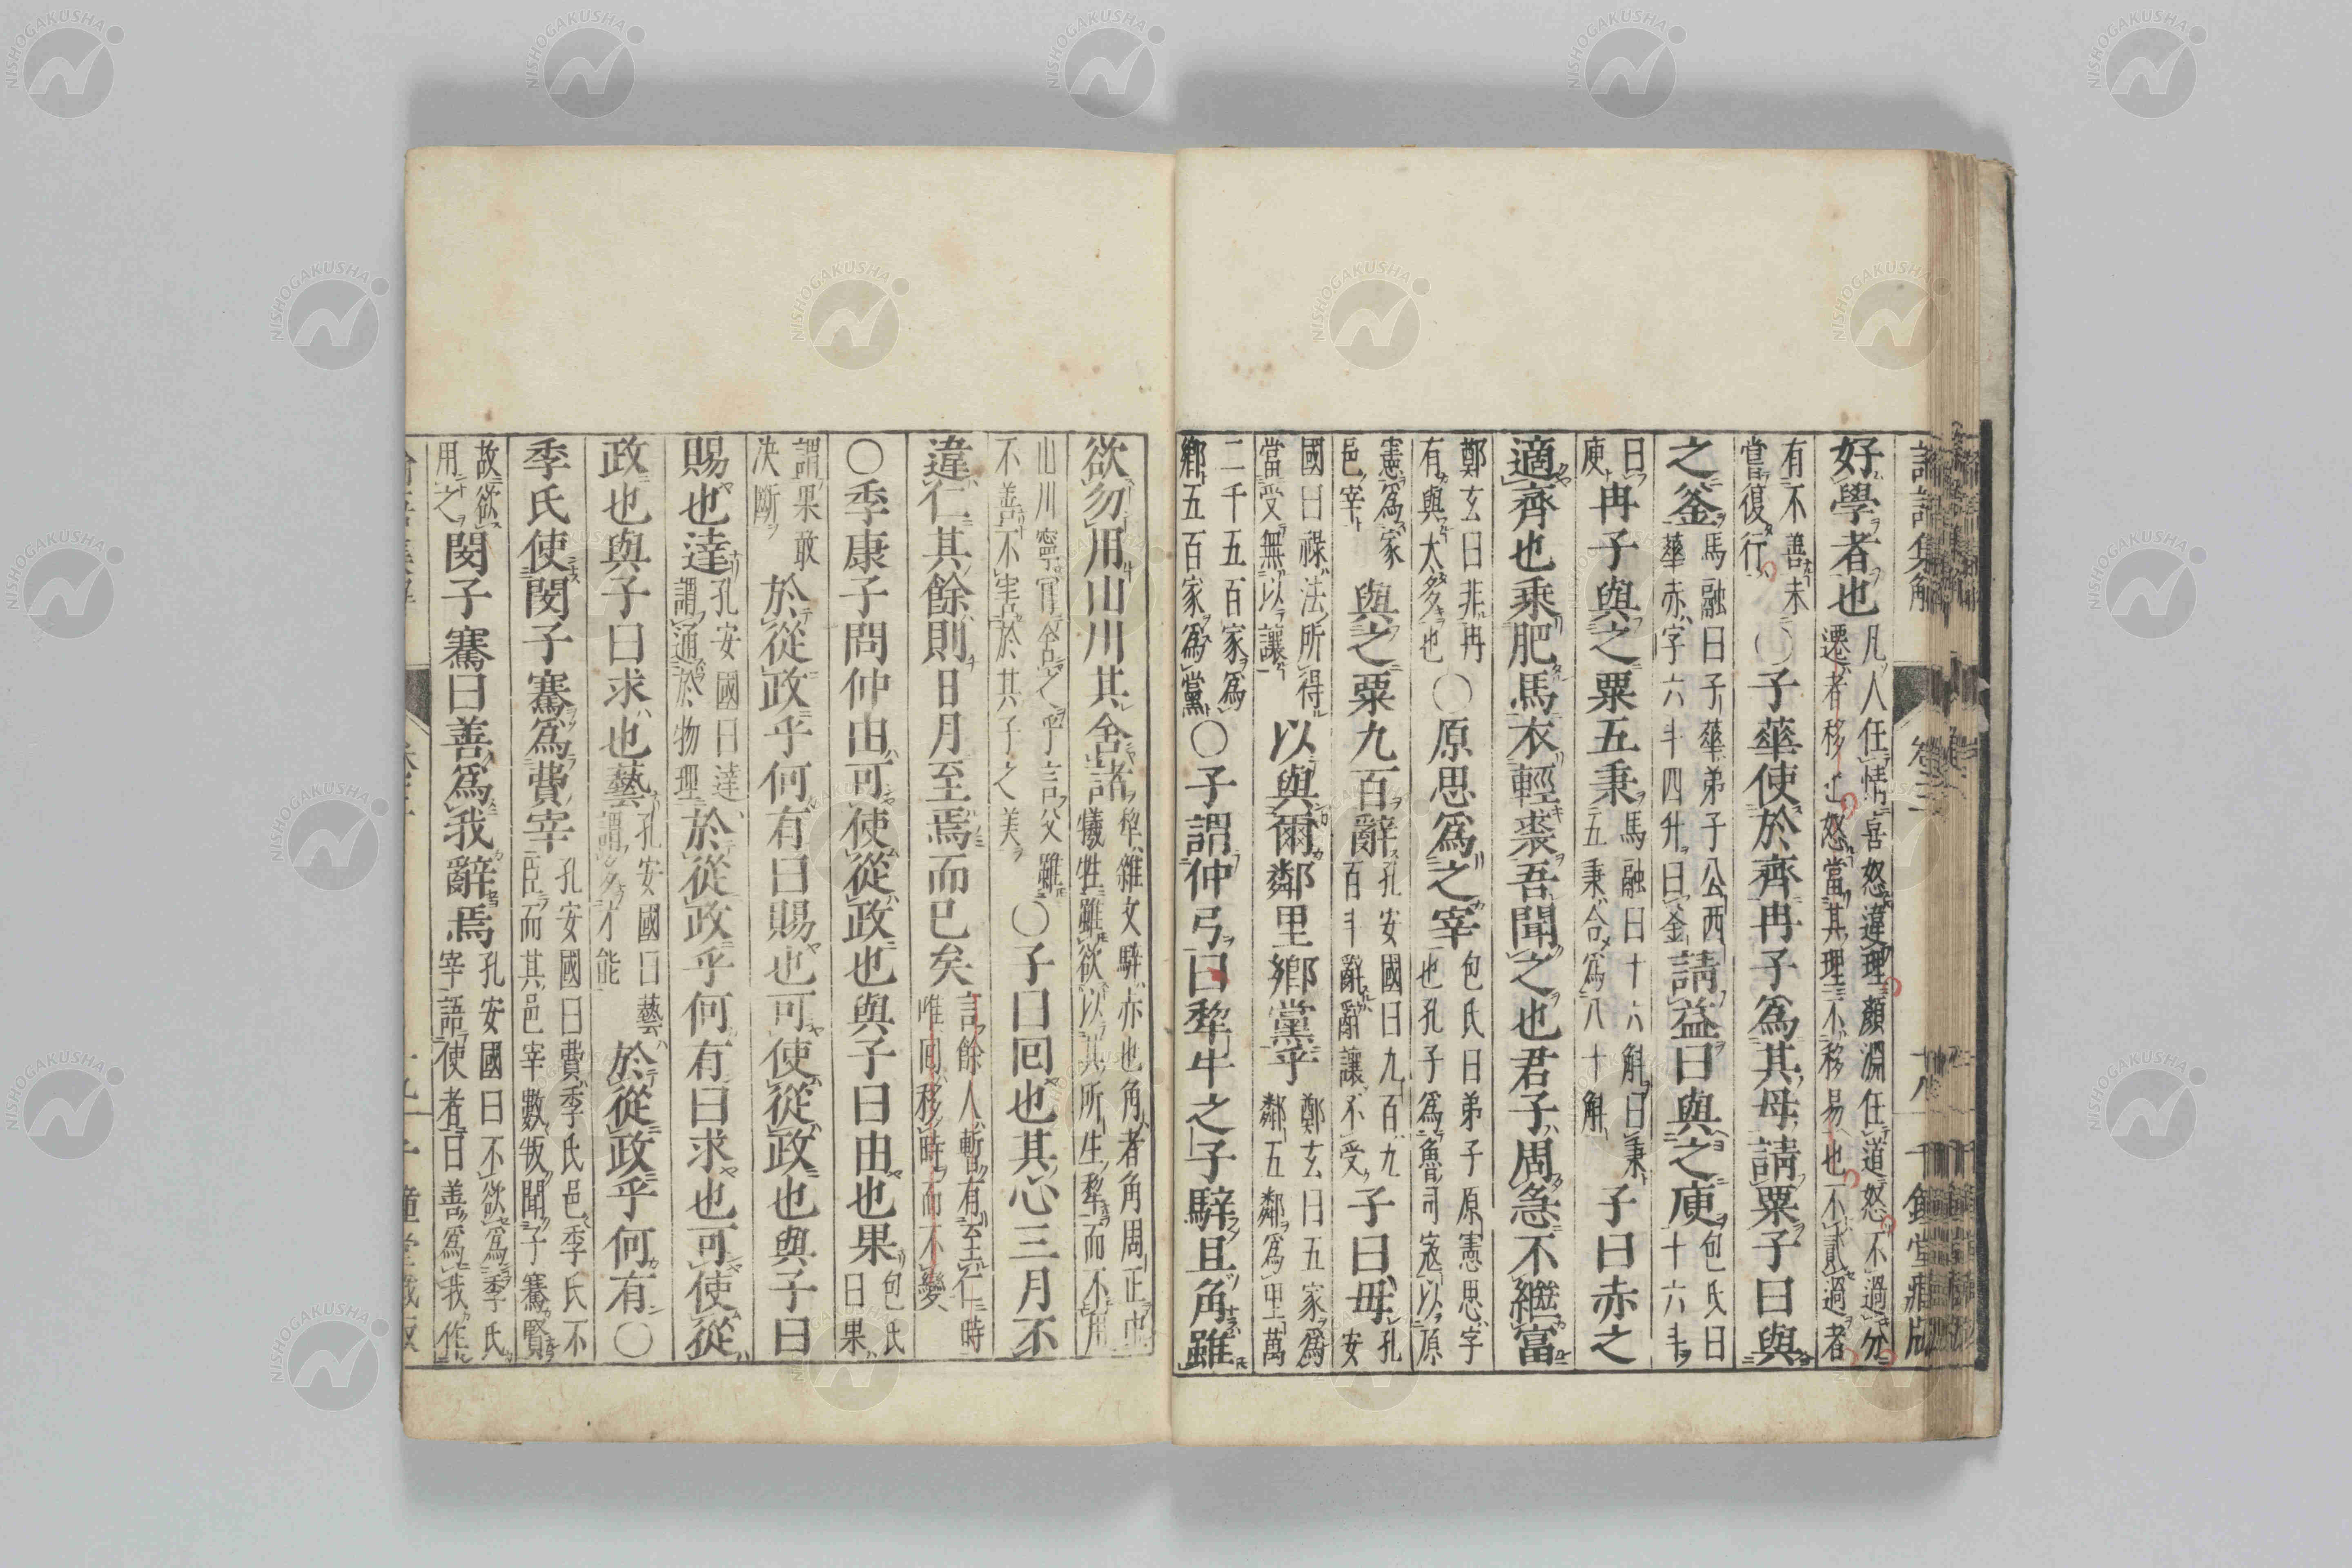 語集解 卷三 十八 千鍾堂藏版
好學者也凡人任情喜怒違理顏淵任道怒不過分
遷者移也怒當其理不移易也不貳過者
有不善未
嘗復行〇子華使於齊冉子為其母請粟子曰與
之釜馬融曰子華弟子公西
華赤字六斗四升曰釜請益曰與之庾包氏曰
十六斗
曰
庾冉子與之粟五秉馬融曰十六斛曰秉
五秉合為八十斛子曰赤之
適齊也乘肥馬衣輕裘吾聞之也君子周急不繼富
鄭玄曰非冉
有與太多也〇原思為之宰包氏曰弟子原憲思字
也孔子為魯司寇以原
憲為家
邑宰與之粟九百辭孔安國曰九百九
百斗辭辭讓不受子曰毋孔
安
國曰祿法所得
當受無以讓以與爾鄰里鄉黨乎鄭玄曰五家為
鄰五鄰為里萬
二千五百家為
鄉五百家為黨〇子謂仲弓曰犂牛之子騂且角雖
欲勿用山川其舍諸犂雜文騂赤也角者角周正也
犧牲雖欲以其所生犂而不用
山川寧肯舍之乎言父雖
不善不害於其子之美〇子曰囘也其心三月不
違仁其餘則日月至焉而已矣言餘人暫有至仁時
唯囘移時而不變
〇季康子問仲由可使從政也與子曰由也果包氏
曰果
謂果敢
決斷於從政乎何有曰賜也可使從政也與子曰
賜也達孔安國曰達
謂通於物理於從政乎何有曰求也可使從
政也與子曰求也藝孔安國曰藝
謂多才能於從政乎何有〇
季氏使閔子騫為費宰孔安國曰費季氏邑季氏不
臣而其邑宰數叛聞子騫賢
故欲
用之閔子騫曰善為我辭焉孔安國曰不欲為季氏
宰語使者曰善為我作